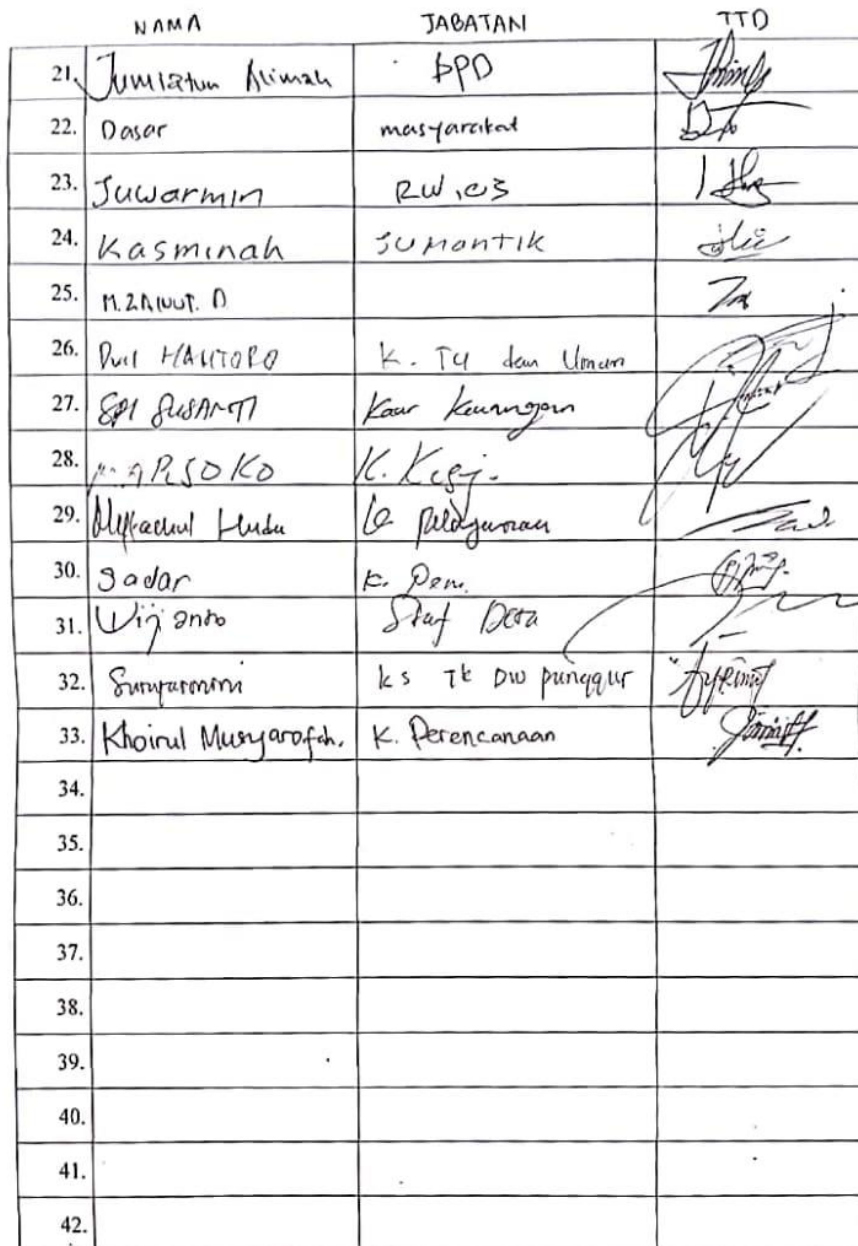 NAMA JABATAN TTD
21. Jumiatun Alimah BPD
22. Dasar masyarakat
23. Juwarmin RW, 03
24. Kasminah JUMANTIK
25. M. ZAINUT. D
26. Dwi HANTORO K. TU dan Umum
27. SRI SUSANTI Kaur Keuangan
28. K. Kesj.
29. Miftachul Huda K. Pelayanan
30. Sadar K. Pem.
31. Wijanto Staf Desa
32. Sumarmini ks Tk DW punggur
33. Khoirul Musyarofah. K. Perencanaan
34.
35.
36.
37.
38.
39.
40.
41.
42.